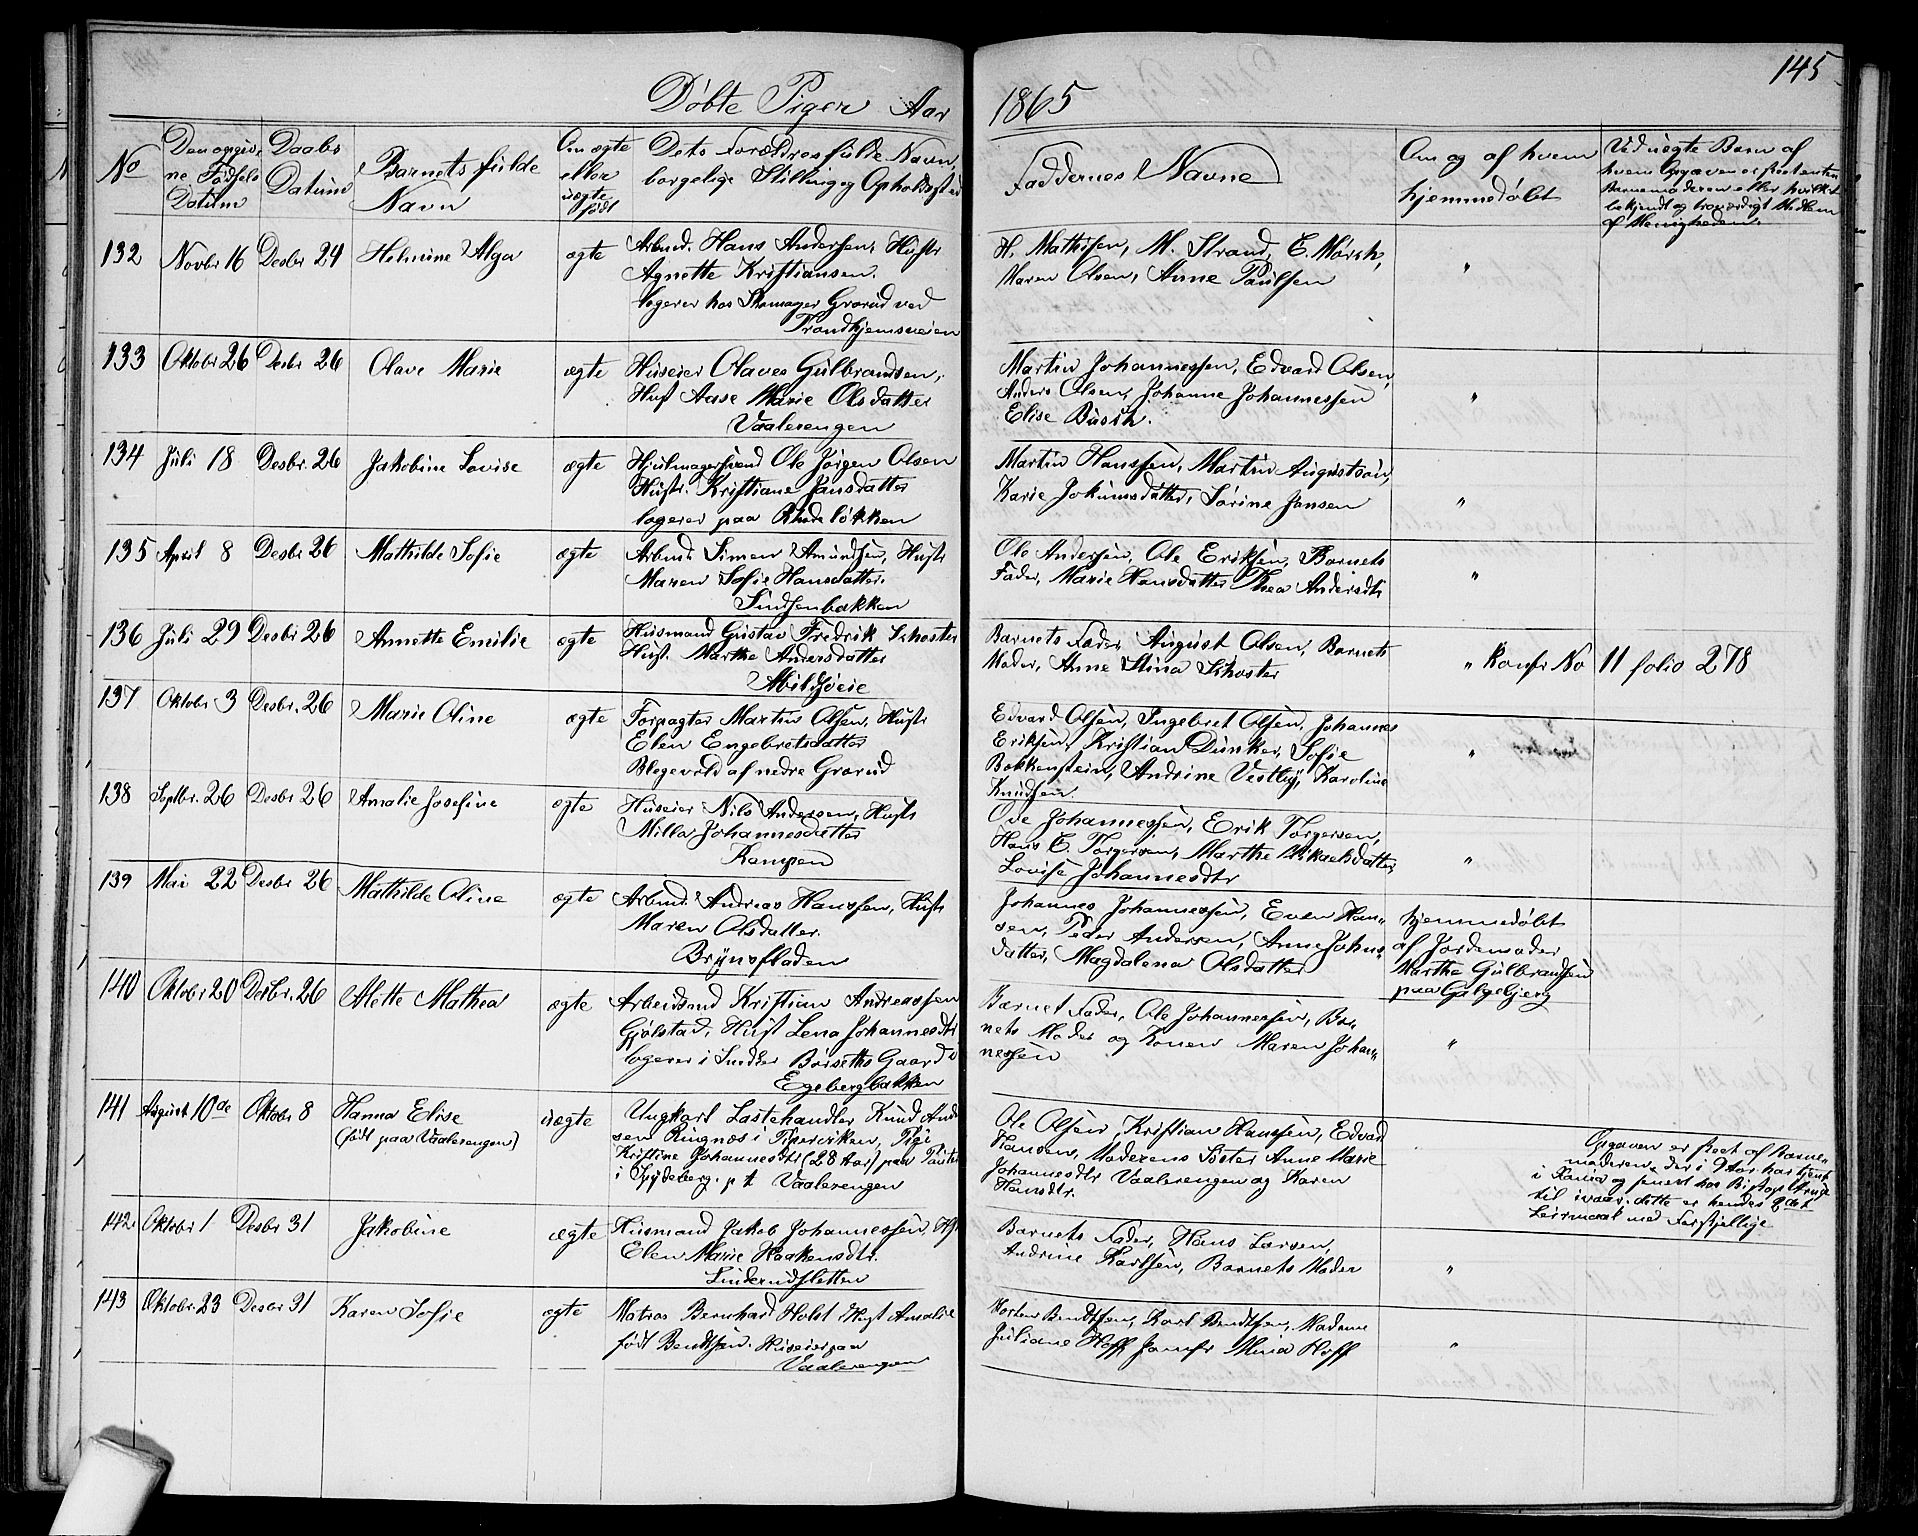 145
Döbte Piger Aar 1865
No
Den opgiv-
ne Födsels
Datum
Daabs
Datum
Barnets fulde
Navn
Om ægte
eller
uægte
födt
Dets Forældres fulde Navn,
borgelige Stilling og Opholdssted
Faddernes Navne
Om og af hvem
hjemmedöbt
Ved uægte Barn af
hvem Opgaven er
Barnemoderen eller hvilket
bekjendt og troværdigt Medlem
af Menigheden.
132 Novbr 16 Desbr 24 Helmine Alga ægte
Arbmd. Hans Andersen, Hustr
Agnette Kristiansen.
logerer hos Skomager Grorud ved
Trondhjemsveien
H. Mathisen, M. Strand, E. Mörch,
Maren Olsen, Anne Paulsen
"
133 Oktobr 26 Desbr 26 Olave Marie ægte
Huseier Olaves Gulbrandsen,
Hust Aase Marie Olsdatter
Vaalerengen
Martin Johannessen, Edvard Olsen,
Anders Olsen, Johanne Johannessen
Elise Busch.
"
134 Juli 18 Desbr. 26 Jakobine Lovise ægte
Hjulmagersvend Ole Jörgen Olsen
Hustr. Kristiane Jansdatter
logerer paa Rhodelökken
Martin Hanssen, Martin Augustson,
Karie Jokumsdatter, Sörine Jansen
"
135 April 8 Desbr 26 Mathilde Sofie ægte
Arbmd. Simen Amundsen, Hustr
Maren Sofie Hansdatter.
Sindsenbakken
Ole Andersen, Ole Eriksen, Barnets
Fader, Marie Hansdatter Thea Andersdtr
"
136 Juli 29 Desbr 26 Annette Emilie ægte
Husmand Gustav Fredrik Schoster
Hust. Marthe Andersdatter
Abildsöeie
Barnets Fader, August Olsen, Barnets
Moder, Anne Stina Schoster
" Konfr No 11 folio 278
137 Oktobr 3 Desbr. 26 Marie Oline ægte
Forpagter Martin Olsen, Hustr
Elen Engebretsdatter
Blegevold af nedre Grorud
Edvard Olsen, Ingebret Olsen, Johannes
Eriksen, Kristian Dunker, Sofie
Bokkenstein, Andrine Vestby, Karoline
Knudsen.
"
138 Septbr. 26 Desbr 26 Amalie Josefine ægte
Huseier Nils Andersen, Hustr
Milla Johannesdatter
Kampen
Ove Johannessen, Erik Torgersen,
Hans E. Torgersen, Marthe Mikaelsdatter,
Lovise Johannesdtr
"
139 Mai 22 Desbr 26 Mathilde Oline ægte
Arbmd. Andreas Hanssen, Hustr
Maren Olsdatter.
Brynsfladen
Johannes Johannessen, Even Han-
sen, Peder Andersen, Anne Johns-
datter, Magdalena Olsdatter
hjemmedöbt
af Jordemoder
Marthe Gulbrandsen
paa Galgebjerg
140 Oktobr 20 Desbr. 26 Alette Mathea ægte
Arbeidsmd Kristian Andreassen
Gjölstad, Hust Lena Johannesdtr
logerer i Snedker Börseths Gaard i
Egebergbakken
Barnet Fader, Ole Johannessen, Bar-
nets Moder og Konen Maren Johan-
nessen
"
141 August 10de Oktobr 8 Hanna Elise
(födt paa Vaalerengen)
uægte
Ungkarl Lastehandler Knud Ander
sen Ringnes i Pipervikken, Pige
Kristine Johannesdtr (28 Aar) paa
i Spydeberg. p t Vaalerengen
Ole Olsen, Kristian Hanssen, Edvard
Hansen, Moderens Söster Anne Marie
Johannesdtr Vaalerengen og Karen
Hansdtr.
Opgaven er skeet af Barne-
moderen, der i Aar har tjent
i Kania og senest hos Biskop Arup
til ivaar. dette er hendes 2det
Leirmaal med Forskjellige
142 Oktobr 1 Desbr 31 Jakobine ægte
Husmand Jakob Johannessen, Hst
Elen Marie Haakensdtr.
Linderudsletten
Barnets Fader, Hans Larsen,
Andrine Karlsen, Barnets Moder
"
143 Oktobr. 23 Desbr 31 Karen Sofie ægte
Matros Bernhard Holst Hust Amalie
födt Bendtsen. Huseier paa
Vaalerengen
Morten Bendtsen, Karl Bendtsen, Madame
Juliane Hoff Jomfr Mina Hoff
"